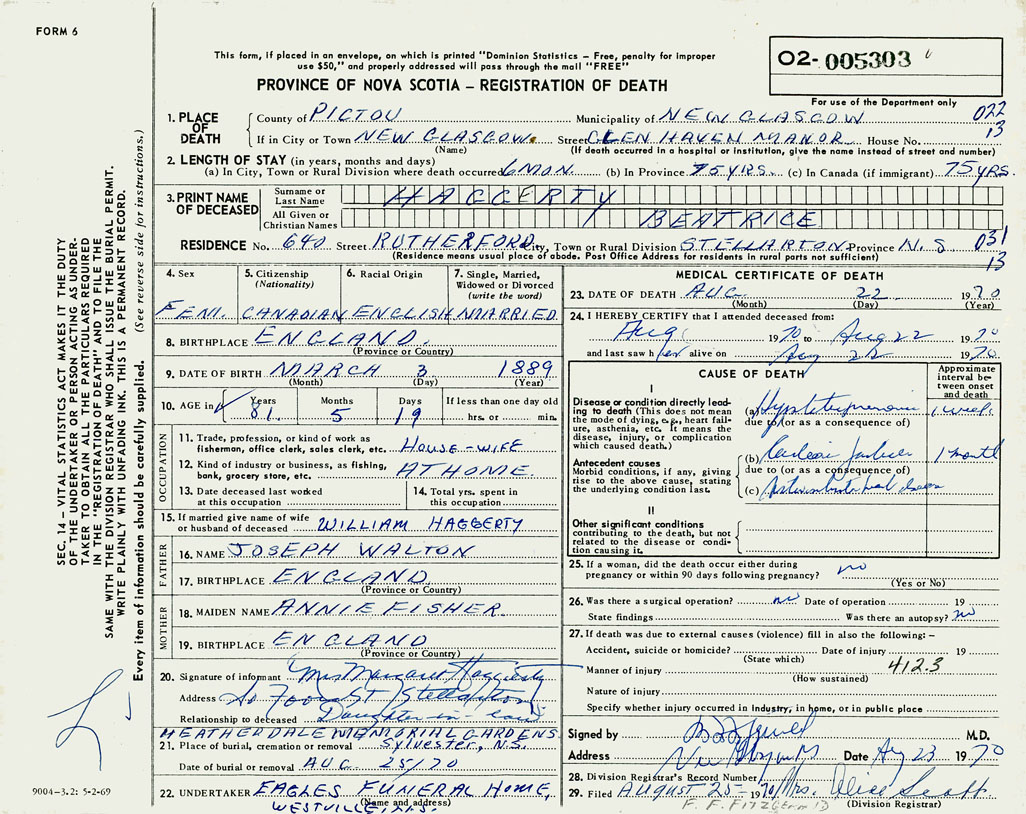 FORM 6
This form, if placed in an envelope, on which is printed "Dominion Statistics – Free, penalty for improper
use $50," and properly addressed will pass through the mail "FREE"
O2- 005303
For use of the Department only
PROVINCE OF NOVA SCOTIA – REGISTRATION OF DEATH
1. PLACE OF DEATH
County of PICTOU Municipality of NEW GLASGOW 022
If in City or Town NEW GLASGOW Street GLEN HAVEN MANOR House No. 13
(Name) (If death occurred in a hospital or institution, give the name instead of street and number)
2. LENGTH OF STAY (in years, months and days)
(a) In City, Town or Rural Division where death occurred 6 MON. (b) In Province 75 YRS. (c) In Canada (if immigrant) 75 YRS.
3. PRINT NAME OF DECEASED
Surname or Last Name HAGGERTY
All Given or Christian Names BEATRICE
RESIDENCE No. 640 Street RUTHERFORD City, Town or Rural Division STELLARTON Province N.S 031
(Residence means usual place of abode. Post Office Address for residents in rural parts not sufficient) 13
4. Sex 5. Citizenship (Nationality) 6. Racial Origin 7. Single, Married, Widowed or Divorced (write the word)
FEM. CANADIAN ENGLISH MARRIED
8. BIRTHPLACE ENGLAND.
(Province or Country)
9. DATE OF BIRTH MARCH 3 1889
(Month) (Day) (Year)
10. AGE in Years Months Days If less than one day old
81 5 19 hrs. or min.
OCCUPATION
11. Trade, profession, or kind of work as
fisherman, office clerk, sales clerk, etc. HOUSE-WIFE
12. Kind of industry or business, as fishing,
bank, grocery store, etc. AT HOME
13. Date deceased last worked
at this occupation
14. Total yrs. spent in
this occupation
15. If married give name of wife
or husband of deceased WILLIAM HAGGERTY
FATHER
16. NAME JOSEPH WALTON
17. BIRTHPLACE ENGLAND
(Province or Country)
MOTHER
18. MAIDEN NAME ANNIE FISHER
19. BIRTHPLACE ENGLAND
(Province or Country)
20. Signature of informant Mrs Margaret Haggerty
Address St Stellarton
Relationship to deceased Daughter-in-law
HEATHERDALE MEMORIAL GARDENS
21. Place of burial, cremation or removal Sylvester, N.S.
Date of burial or removal AUG 25/70
22. UNDERTAKER EAGLES FUNERAL HOME,
(Name and address)
WESTVILLE, N.S.
MEDICAL CERTIFICATE OF DEATH
23. DATE OF DEATH AUG. 22 1970
(Month) (Day) (Year)
24. I HEREBY CERTIFY that I attended deceased from:
Aug 1970 to Aug 22 1970
and last saw her alive on Aug 22 1970
CAUSE OF DEATH
Approximate interval between onset and death
I
Disease or condition directly leading to death (This does not mean the mode of dying, e.g., heart failure, asthenia, etc. It means the disease, injury, or complication which caused death.)
(a) 1 week
due to (or as a consequence of)
Antecedent causes
Morbid conditions, if any, giving rise to the above cause, stating the underlying condition last.
(b) Cardiac failure 1 month
due to (or as a consequence of)
(c)
II
Other significant conditions
contributing to the death, but not
related to the disease or condition causing it.
25. If a woman, did the death occur either during
pregnancy or within 90 days following pregnancy? no
(Yes or No)
26. Was there a surgical operation? no Date of operation 19
State findings Was there an autopsy? no
27. If death was due to external causes (violence) fill in also the following: –
Accident, suicide or homicide? Date of injury 19
(State which)
Manner of injury 412.3
(How sustained)
Nature of injury
Specify whether injury occurred in industry, in home, or in public place
Signed by M.D.
Address Date Aug 23 1970
28. Division Registrar's Record Number
29. Filed AUGUST 25- 1970 Mrs. Alice Scott
(Division Registrar)
SEC. 14 – VITAL STATISTICS ACT MAKES IT THE DUTY
OF THE UNDERTAKER OR PERSON ACTING AS UNDER-
TAKER TO OBTAIN ALL THE PARTICULARS REQUIRED
IN THE "REGISTRATION OF DEATH" AND TO FILE THE
SAME WITH THE DIVISION REGISTRAR WHO SHALL ISSUE THE BURIAL PERMIT.
WRITE PLAINLY WITH UNFADING INK. THIS IS A PERMANENT RECORD.
Every item of information should be carefully supplied. (See reverse side for instructions.)
9004-3.2: 5-2-69